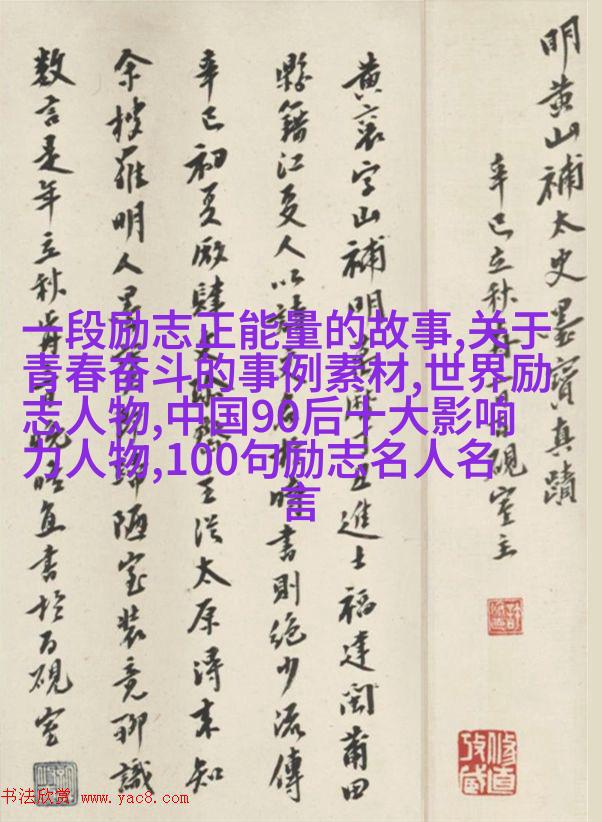 明黄山補太史墨寶真蹟
辛巳立秋硯室主
黄襄字山補明丁丑進士福建閩莆田
縣籍江夏人以詩時書則絶少流傳
辛巳初夏厰肆文太原得未知
余搜羅明人陋室裝竟聊識
數言是年立秋書於百硯室
一段励志正能量的故事,关于
青春奋斗的事例素材,世界励
志人物,中国90后十大影响
力人物,100句励志名人名
言
书法欣赏 www.yac8.com